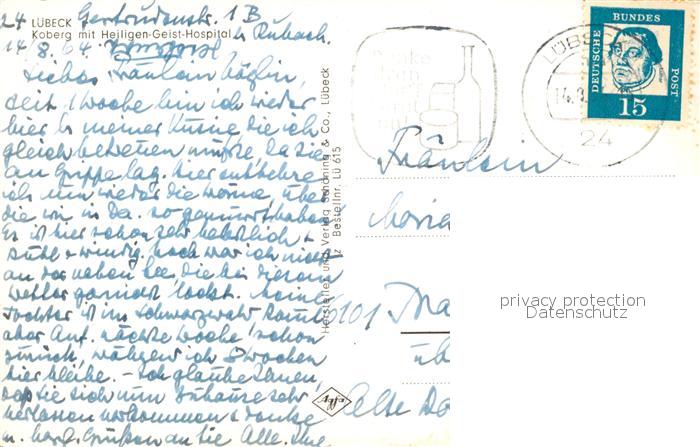 24 Gertrudenstr. 1 B
LÜBECK
Koberg mit Heiligen-Geist-Hospital
b Rubach.
14/8.64.
Liebes Fräulein
seit 1 Woche bin ich wieder
hier bei meiner Kusine, die ich
gleich betreuen mußte, da sie
an Grippe lag. Hier entbehre
ich nun wieder die Wärme, über
die wir in Da. so gemurrt haben
Es ist hier schon sehr herbstlich +
kühl + windig. Noch war ich nicht
an der nahen See, die bei diesem
Wetter garnicht lockt. Meine
Tochter ist im Schwarzwald, kommt
aber Anf. nächste Woche schon
zurück, während ich 8 Wochen
hier bleibe. - Ich glaube Ihnen,
daß Sie sich nun zuhause sehr
verlassen vorkommen & denke
m. herzl. Grüßen an Sie Alle. Ihre
Hersteller und Verlag Schöning & Co., Lübeck
Bestellnr. LÜ 615
LÜBECK
24
DEUTSCHE
BUNDES
POST
15
Fräulein
Maria
6101
üb
Alte Da
privacy protection
Datenschutz